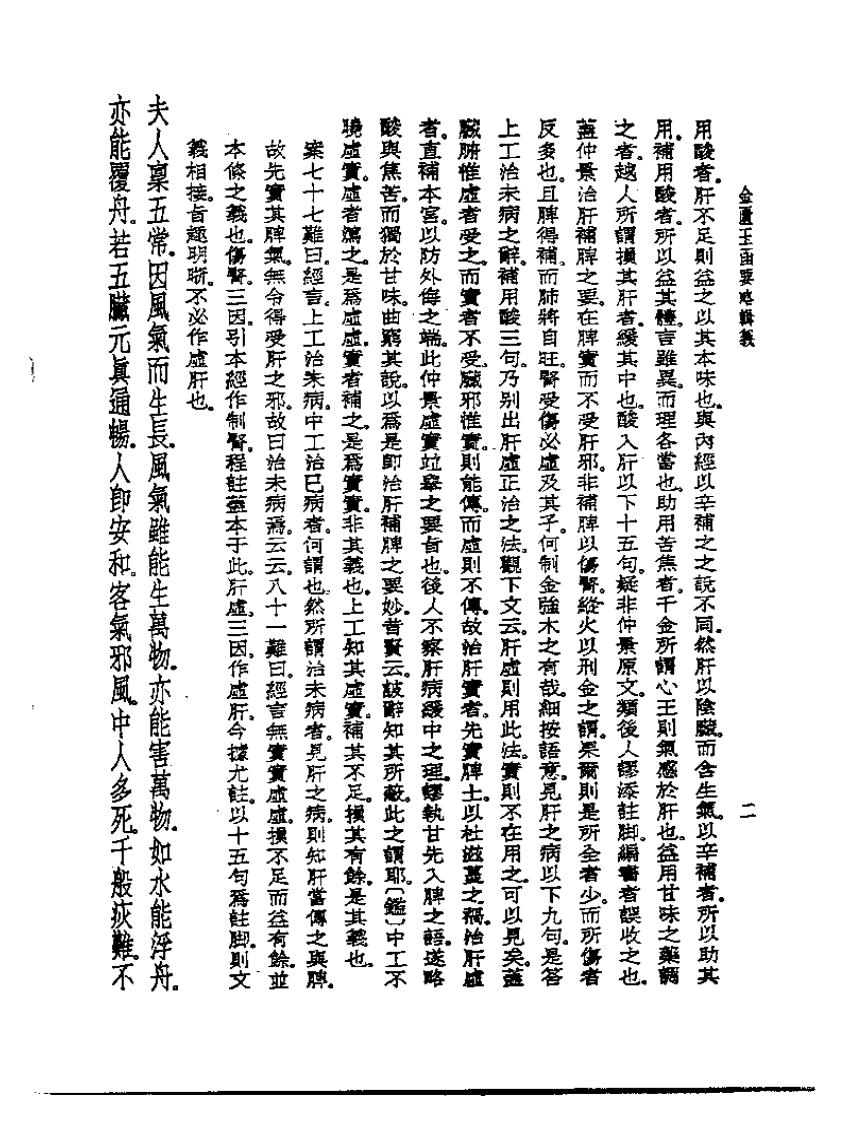 金匱玉函要略輯義
二
用酸者。肝不足則益之以其本味也。與內經以辛補之之說不同。然肝以陰臟。而含生氣。以辛補者。所以助其
用。補用酸者。所以益其體。言雖異。而理各當也。助用苦焦者。千金所謂心王則氣感於肝也。益用甘味之藥調
之者。越人所謂損其肝者。緩其中也。酸入肝以下十五句。疑非仲景原文。類後人謬添註脚。編書者誤收之也。
蓋仲景治肝補脾之要。在脾實而不受肝邪。非補脾以傷腎。縱火以刑金之謂。果爾則是所全者少。而所傷者
反多也。且脾得補。而肺將自旺。腎受傷必虛及其子。何制金強木之有哉。細按語意。見肝之病以下九句。是答
上工治未病之辭。補用酸三句。乃別出肝虛正治之法。觀下文云肝虛則用此法。實則不在用之。可以見矣。蓋
臟腑惟虛者受之。而實者不受。臟邪惟實。則能傳。而虛則不傳。故治肝實者。先實脾土。以杜滋蔓之禍。治肝虛
者。直補本宮。以防外侮之端。此仲景虛實竝舉之要旨也。後人不察肝病緩中之理。謬執甘先入脾之語。遂略
酸與焦苦。而獨於甘味曲窮其說。以爲是卽治肝補脾之要妙。昔賢云。詖辭知其所蔽。此之謂耶。〔鑑〕中工不
曉虛實。虛者瀉之。是爲虛虛。實者補之。是爲實實。非其義也。上工知其虛實。補其不足。損其有餘。是其義也。
案七十七難曰。經言。上工治未病。中工治已病者。何謂也。然所謂治未病者。見肝之病。則知肝當傳之與脾。
故先實其脾氣。無令得受肝之邪。故曰治未病焉。云云。八十一難曰。經言無實實虛虛。損不足而益有餘。並
本條之義也。傷腎。三因。引本經作制腎。程註蓋本于此。肝虛。三因。作虛肝。今據尤註。以十五句爲註脚。則文
義相接。旨趣明晰。不必作虛肝也。
夫人稟五常。因風氣而生長。風氣雖能生萬物。亦能害萬物。如水能浮舟。
亦能覆舟。若五臟元眞通暢。人卽安和。客氣邪風。中人多死。千般疢難。不